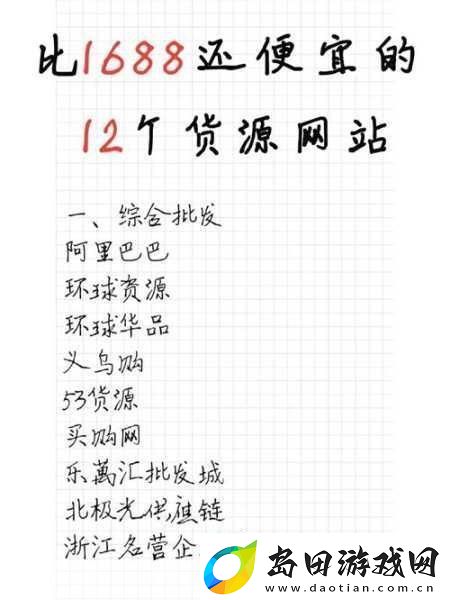 比1688还便宜的
12个货源网站
一、综合批发
阿里巴巴
环球资源
环球华品
义乌购
53货源
买购网
乐萬汇批发城
北极光供应链
浙江名营企
岛田游戏网
www.daotian.com